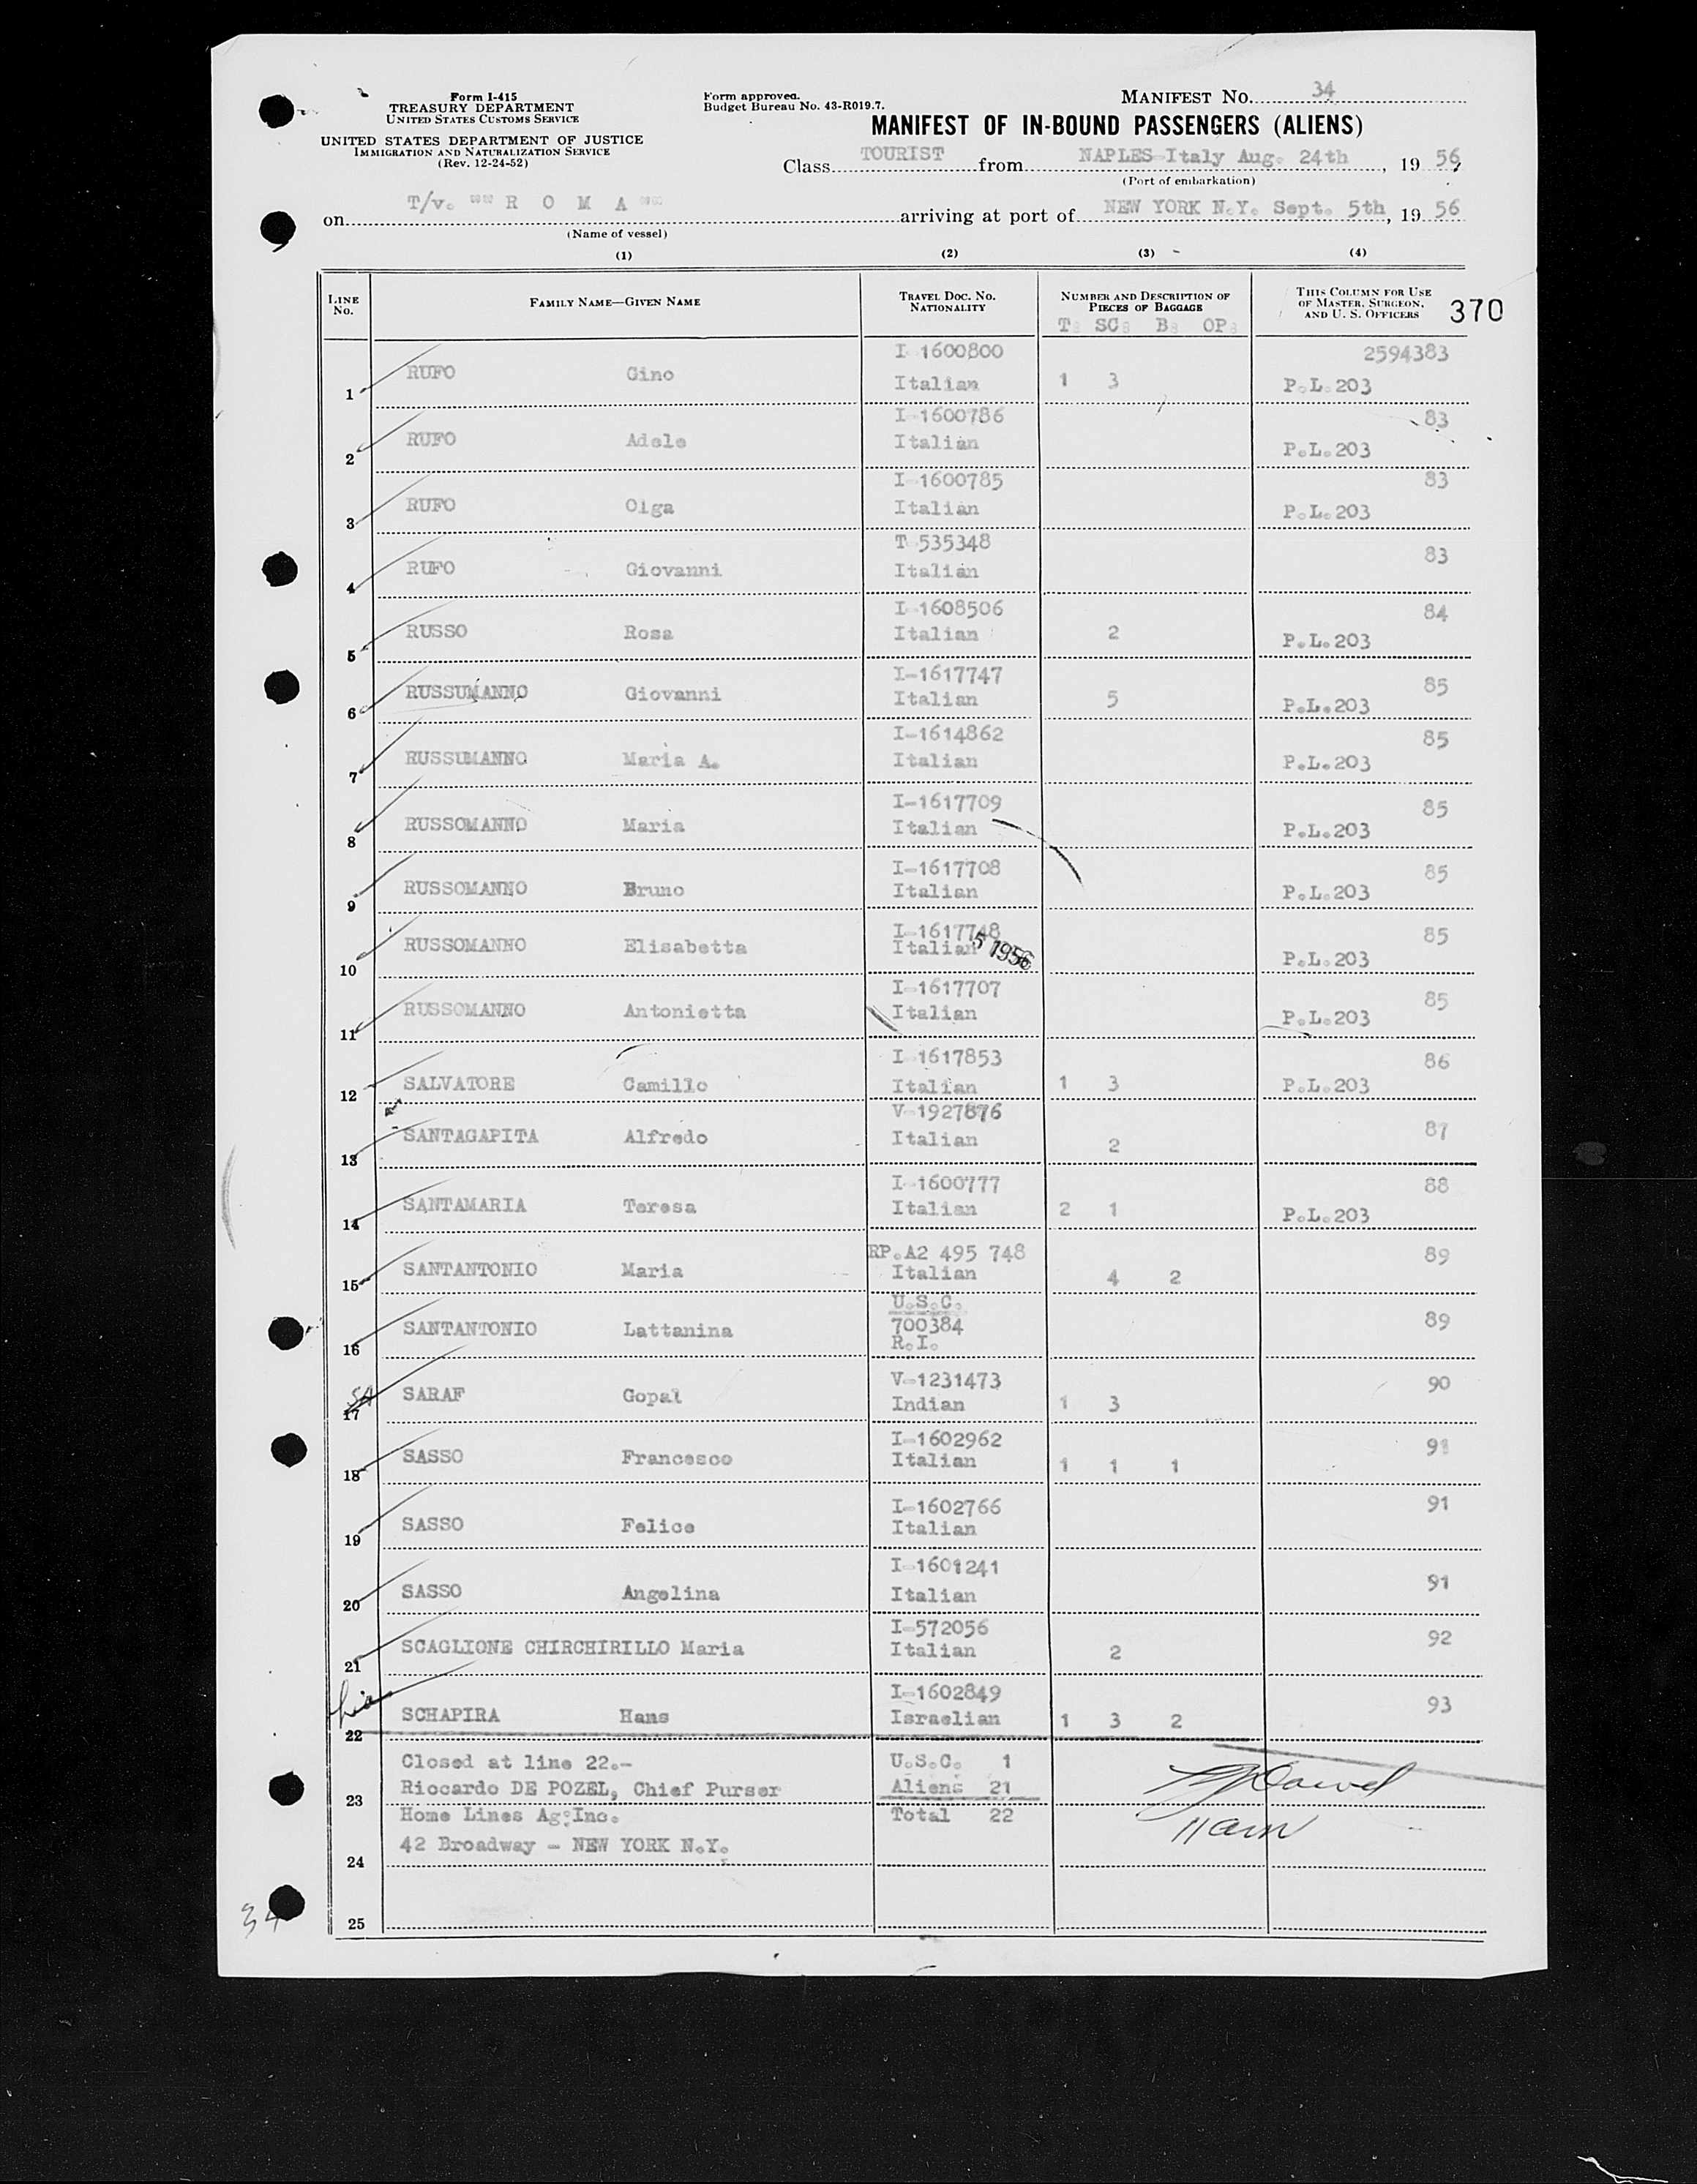 Form I-415
TREASURY DEPARTMENT
UNITED STATES CUSTOMS SERVICE
UNITED STATES DEPARTMENT OF JUSTICE
IMMIGRATION AND NATURALIZATION SERVICE
(Rev. 12-24-52)
Form approved.
Budget Bureau No. 43-R019.7.
MANIFEST No. 34
MANIFEST OF IN-BOUND PASSENGERS (ALIENS)
Class TOURIST from NAPLES-Italy Aug. 24th, 19 56,
(Port of embarkation)
on T/v. "" R O M A "" arriving at port of NEW YORK N.Y. Sept. 5th, 19 56
(Name of vessel)
(1) (2) (3) (4)
LINE No. FAMILY NAME—GIVEN NAME TRAVEL DOC. No. NATIONALITY NUMBER AND DESCRIPTION OF PIECES OF BAGGAGE THIS COLUMN FOR USE OF MASTER, SURGEON, AND U. S. OFFICERS 370
T: SC: B: OP:
I-1600800 2594383
1 RUFO Gino Italian 1 3 P.L.203
I-1600786 83
2 RUFO Adele Italian P.L.203
I-1600785 83
3 RUFO Olga Italian P.L.203
T-535348 83
4 RUFO Giovanni Italian
I-1608506 84
5 RUSSO Rosa Italian 2 P.L.203
I-1617747 85
6 RUSSUMANNO Giovanni Italian 5 P.L.203
I-1614862 85
7 RUSSUMANNO Maria A. Italian P.L.203
I-1617709 85
8 RUSSOMANNO Maria Italian P.L.203
I-1617708 85
9 RUSSOMANNO Bruno Italian P.L.203
I-1617748 85
10 RUSSOMANNO Elisabetta Italian 5 1956 P.L.203
I-1617707 85
11 RUSSOMANNO Antonietta Italian P.L.203
I-1617853 86
12 SALVATORE Camillo Italian 1 3 P.L.203
V-1927876 87
13 SANTAGAPITA Alfredo Italian 2
I-1600777 88
14 SANTAMARIA Teresa Italian 2 1 P.L.203
RP.A2 495 748 89
15 SANTANTONIO Maria Italian 4 2
U.S.C.
16 SANTANTONIO Lattanina 700384 89
R.I.
V-1231473 90
17 SARAF Gopal Indian 1 3
I-1602962 91
18 SASSO Francesco Italian 1 1 1
I-1602766 91
19 SASSO Felice Italian
I-1601241 91
20 SASSO Angelina Italian
I-572056 92
21 SCAGLIONE CHIRCHIRILLO Maria Italian 2
I-1602849 93
22 SCHAPIRA Hans Israelian 1 3 2
Closed at line 22.- U.S.C. 1
23 Riccardo DE POZEL, Chief Purser Aliens 21
Home Lines Ag:Inc. Total 22
11am
24 42 Broadway - NEW YORK N.Y.
25
34